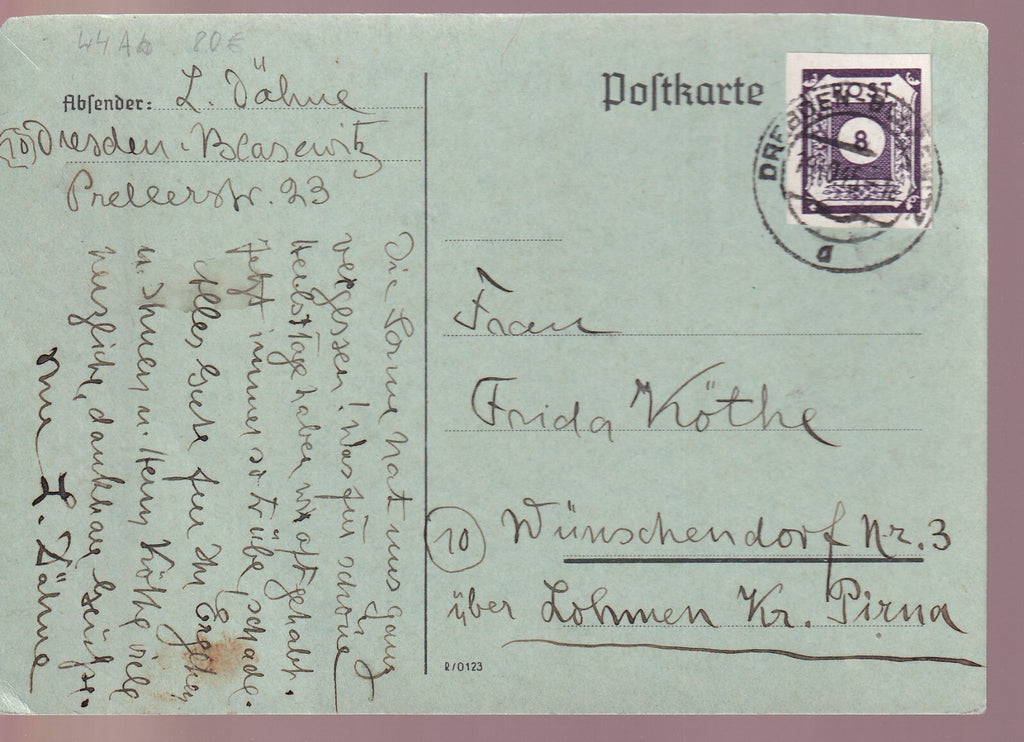 44 A 80 €
Absender: L. Dähne
(10) Dresden-Blasewitz
Prellerstr. 23
Die Sonne hat uns ganz
vergessen! Was für schöne
Herbsttage haben wir oft gehabt.
Jetzt immer so trübe, schade.
Alles Gute für Ihr Engelchen
u. Ihnen u. Herrn Köthe viele
herzliche, dankbare Grüße.
Ihre L. Dähne
Postkarte
POST
8
DRESDEN
a
Frau
Frida Köthe
(10) Wünschendorf Nr. 3
über Lohmen Kr. Pirna
R/0123